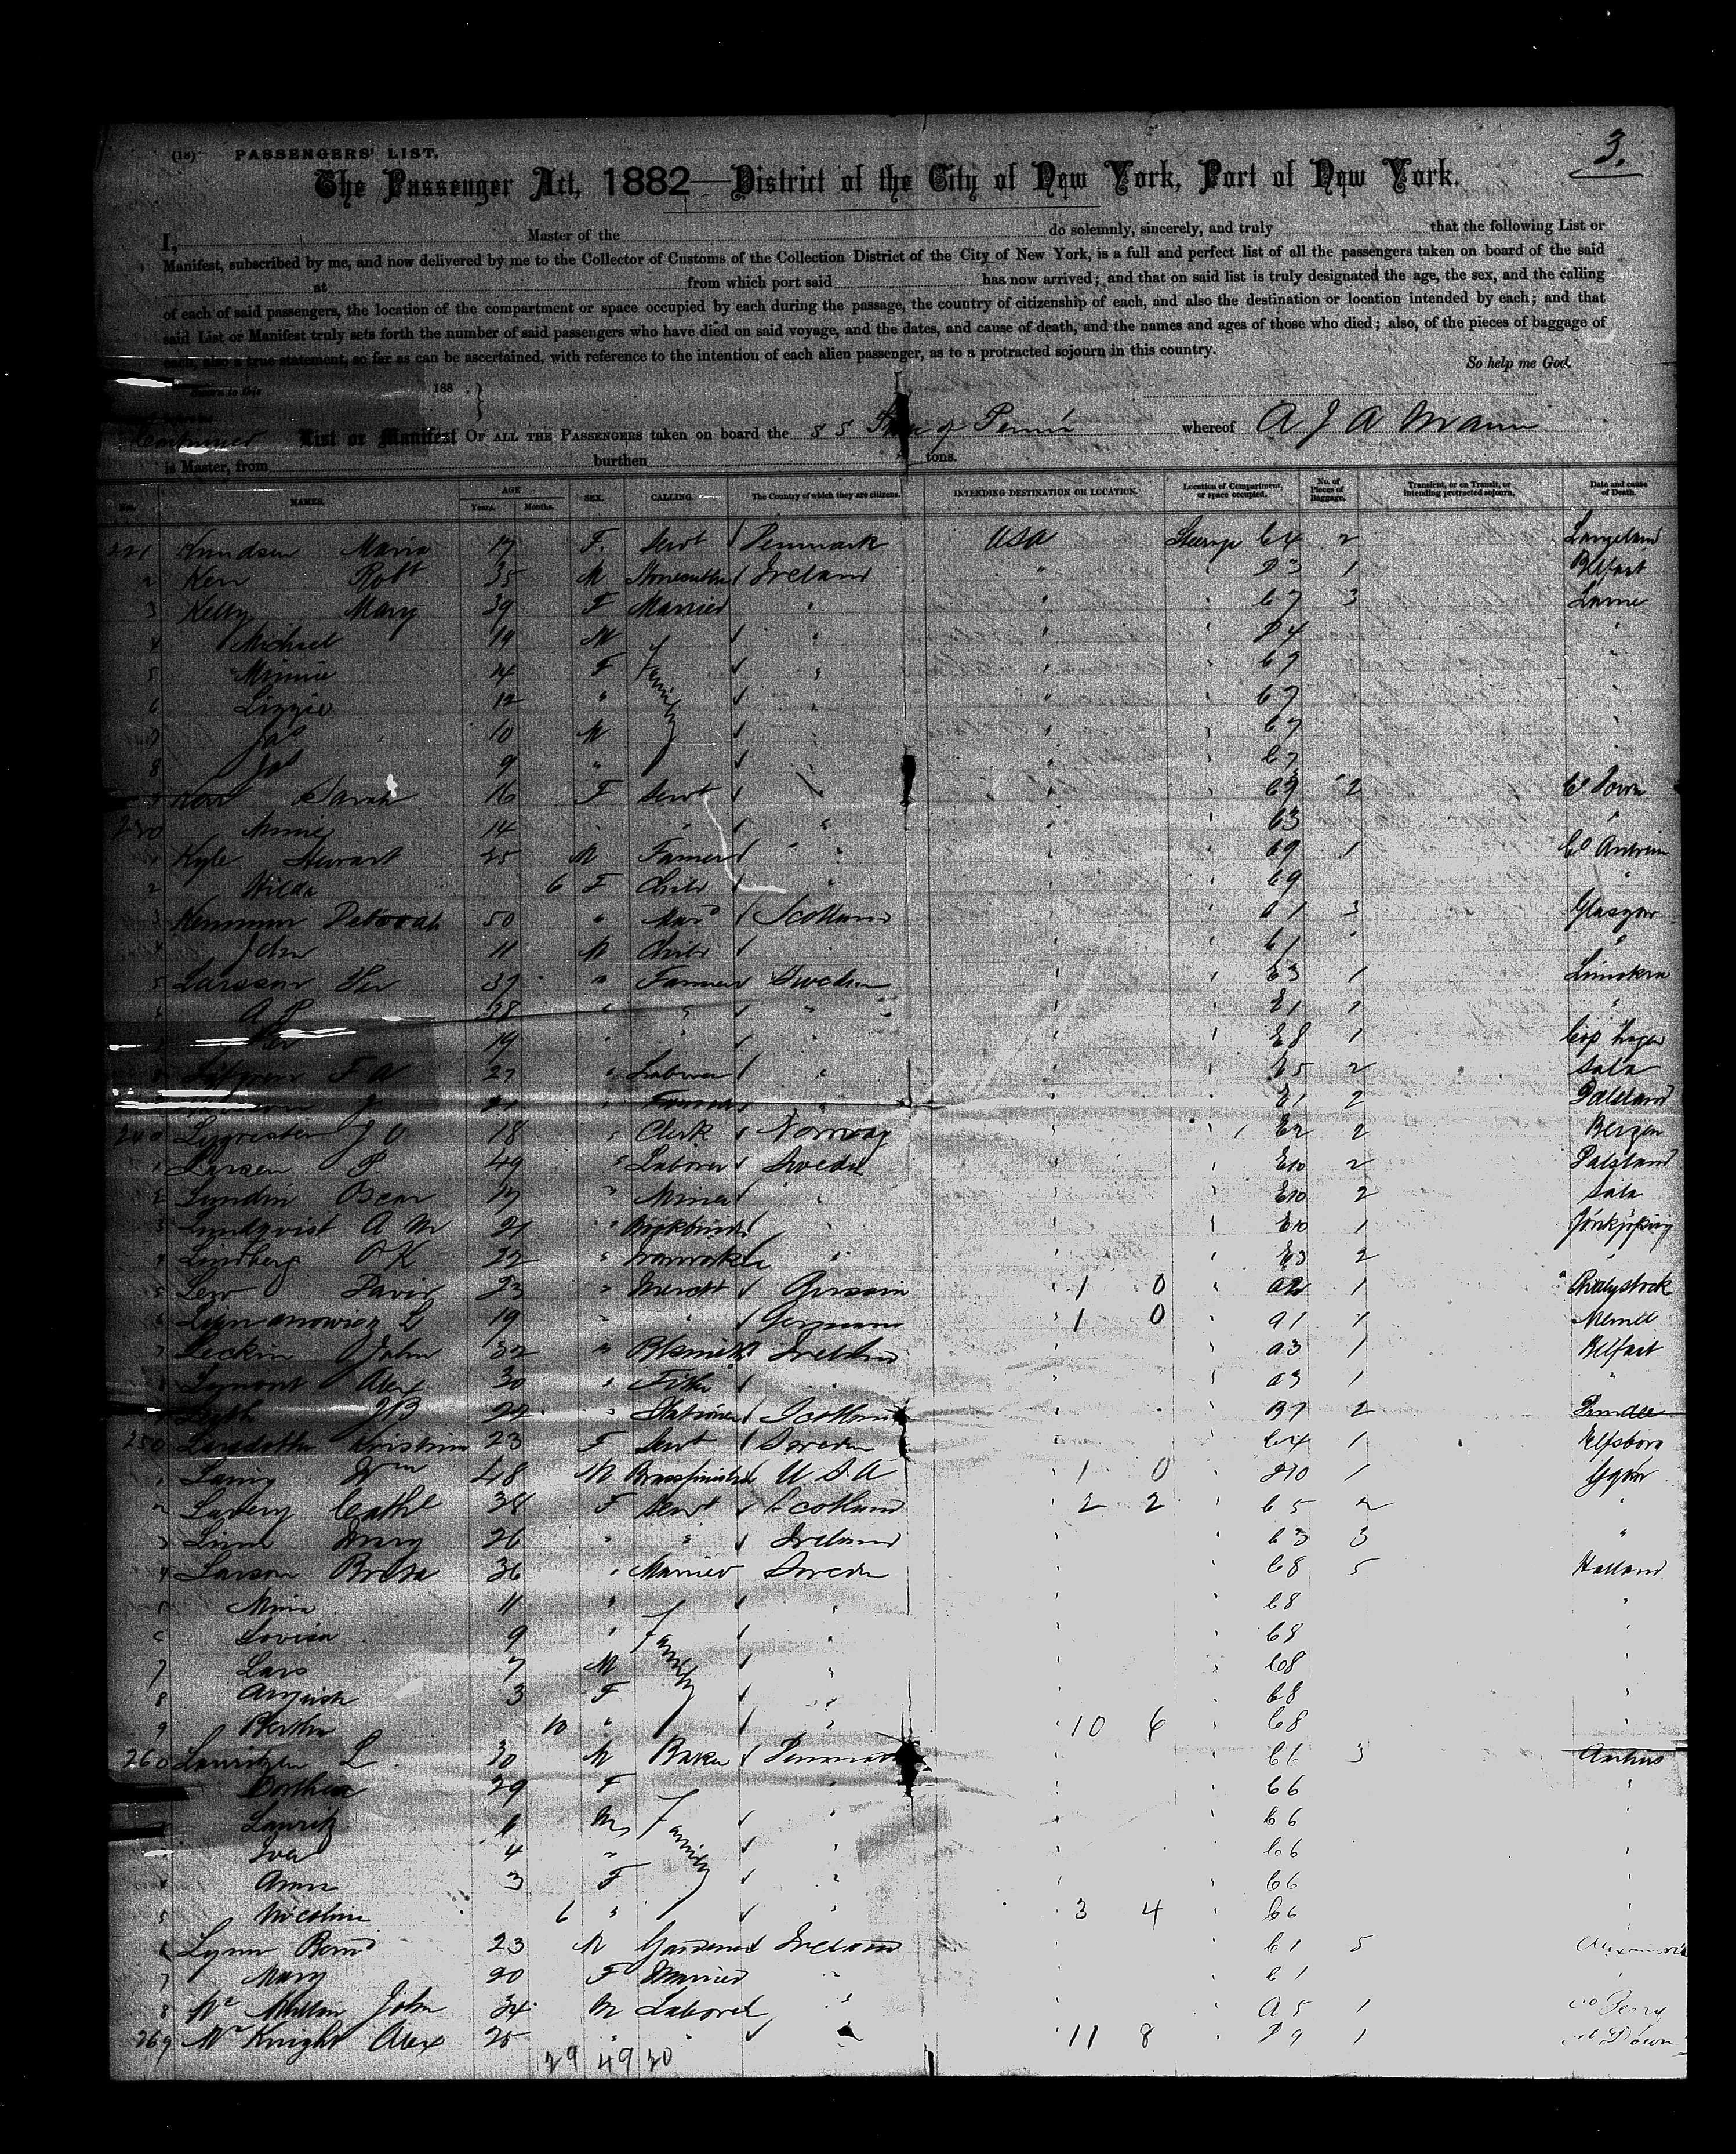 3.
(18) PASSENGERS' LIST.
The Passenger Act, 1882—District of the City of New York, Port of New York.
I, Master of the do solemnly, sincerely, and truly that the following List or
Manifest, subscribed by me, and now delivered by me to the Collector of Customs of the Collection District of the City of New York, is a full and perfect list of all the passengers taken on board of the said
at from which port said has now arrived; and that on said list is truly designated the age, the sex, and the calling
of each of said passengers, the location of the compartment or space occupied by each during the passage, the country of citizenship of each, and also the destination or location intended by each; and that
said List or Manifest truly sets forth the number of said passengers who have died on said voyage, and the dates, and cause of death, and the names and ages of those who died; also, of the pieces of baggage of
each, also a true statement, so far as can be ascertained, with reference to the intention of each alien passenger, as to a protracted sojourn in this country.
So help me God.
Sworn to this 188 . }
Continued List or Manifest OF ALL THE PASSENGERS taken on board the S S of Penn'a whereof A J A Mann
is Master, from burthen tons.
Nos. NAMES. AGE Years. Months. SEX. CALLING. The Country of which they are citizens. INTENDING DESTINATION OR LOCATION. Location of Compartment, or space occupied. No. of Pieces of Baggage. Transient, or on Transit, or intending protracted sojourn. Date and cause of Death.
221 Knudsen Maria 17 F. Servt Denmark USA Steerage C4 2 Langeland
2 Kerr Robt 35 M Stonecutter Ireland " D3 1 Belfast
3 Kelly Mary 39 F Married " " C7 3 Larne
4 Michael 19 M " " D4 "
5 Minnie 14 F Family " " C7 "
6 Lizzie 12 " " " C7 "
7 Jas 10 M " " C7 "
8 9 " " C7
Sarah 16 F Servt " " 2 Co Down
230 Minnie 14 " " " " C3 "
1 Kyle Stewart 25 M Farmer " " C9 1 Co Antrim
2 Hilda 6 F Child " " C9 "
3 Deborah 50 " Mard Scotland " 3 Glasgow
4 John 11 M Child " " C1 "
5 Larsson Per 37 " Farmer Sweden " E3 1
6 A P 38 " " " " E1 1 "
7 19 " " " " E8 1 Cop hagen
8 F A 27 " Laborer " " E5 2 Sala
9 J " Farmer " " E1 2 Dalsland
240 J O 18 " Clerk Norway " E2 2 Bergen
1 Larsen P 49 " Laborer Sweden " E10 2 Dalsland
2 Lundin Oscar 17 " Miner " " E10 2 Sala
3 Lundqvist A M 21 " Bookbinder " " E10 1 Jönköping
4 Lindberg O K 22 " Ironworker " " E3 2 "
5 Lew David 23 " Mercht Russia " 1 0 A2 1 Bialystock
6 L 19 " " Germany " 1 0 A1 1 Memel
7 Leckin John 32 " Blksmith Ireland " A3 1 Belfast
8 Lymont Alex 30 " Fitter " " A3 1 "
9 J B 22 " Stationer Scotland " B7 2 Dundee
250 Kristina 23 F Servt Sweden " C4 1 Elfsborg
1 Laing Wm 48 M Brassfinisher U S A " 1 0 D10 1 Ggow
2 Lavery Cathe 38 F Servt Scotland " 2 2 C5 2 "
3 Mary 26 " " Ireland " C3 3 "
4 Larson 36 " Married Sweden " C8 5 Halland
5 Mina 11 " " " C8 "
6 Lovisa 9 " Family " " C8 "
7 Lars 7 M " " C8 "
8 3 F " " C8 "
9 Bertha 10 " " " 10 6 C8 "
260 Lauritzen L 30 M Baker Denmark " C1 3 Aarhus
Dorthea 29 F " " C6 "
Lauritz 6 M Family " " C6 "
Iver 4 " " " C6 "
Anna 3 F " " C6 "
5 Nicoline 6 " " " 3 4 C6 "
6 Lynn Bernd 23 M Gardener Ireland " C1 5
7 Mary 20 F Married " " C1 "
8 Mc Mullan John 34 M Laborer " " A5 1 Co Derry
269 Mc Knight Alex 25 " " " 11 8 D9 1 Co Down
29 49 20